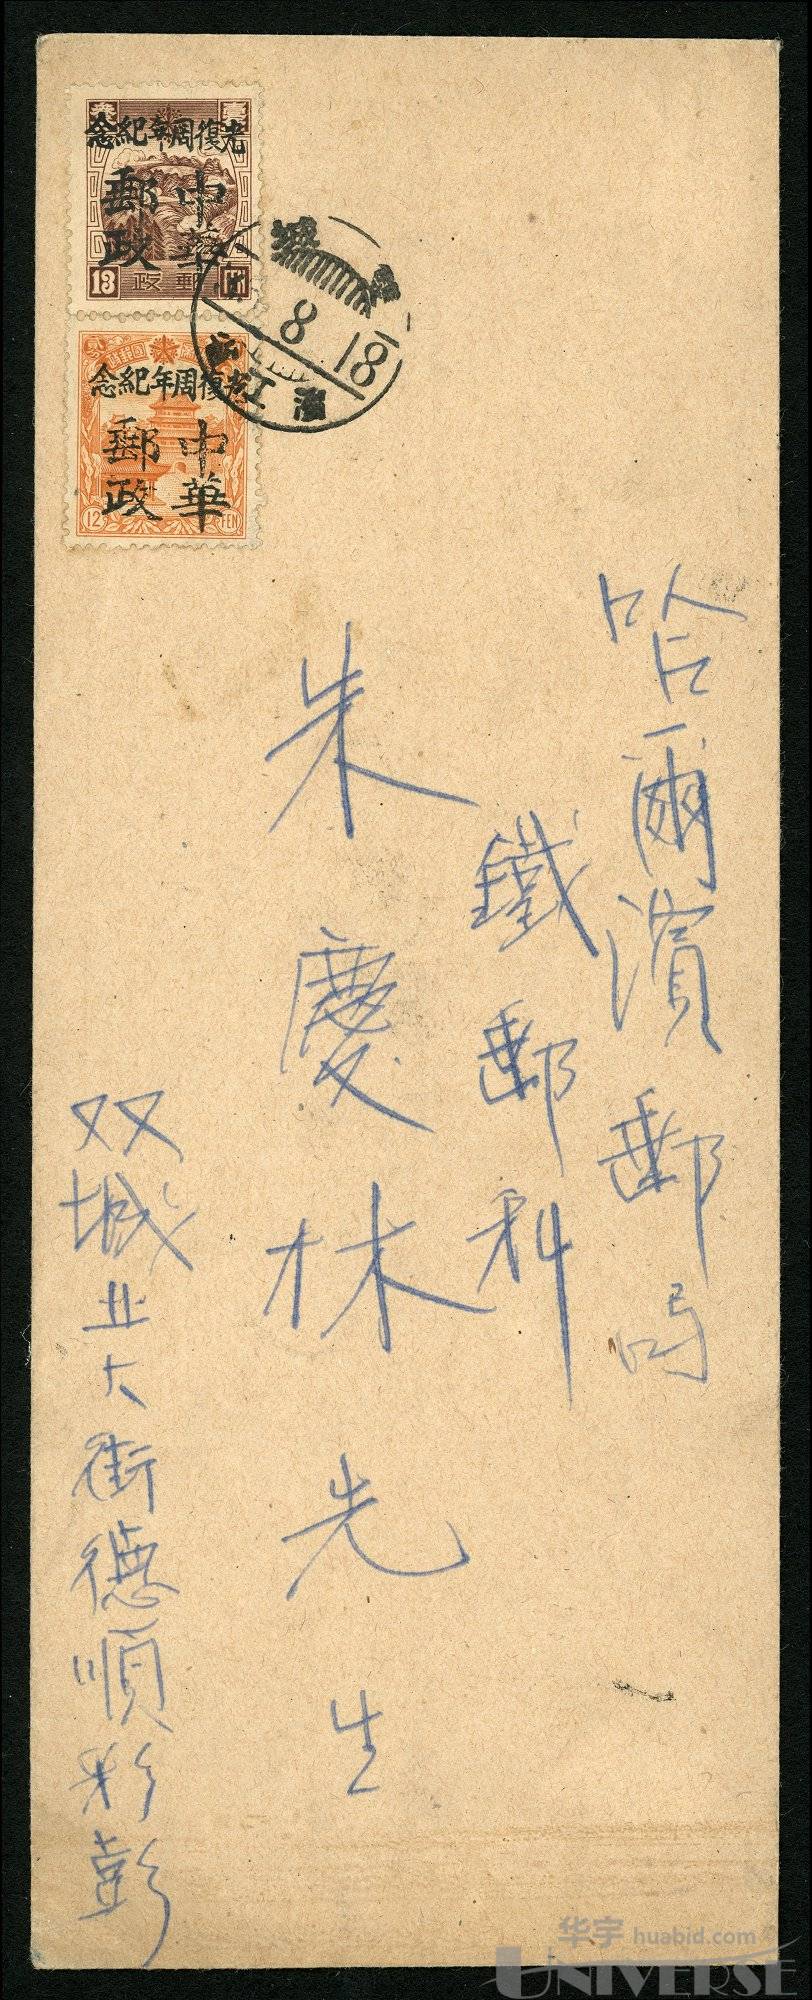 光復周年紀念
中華
郵政
13
郵政
光復周年紀念
中華
郵政
12
FEN
城
8 18
江
哈爾濱郵局
鐵郵科
朱慶林先生
双城北大街德順彩彭
华宇 huabid.com
UNIVERSE